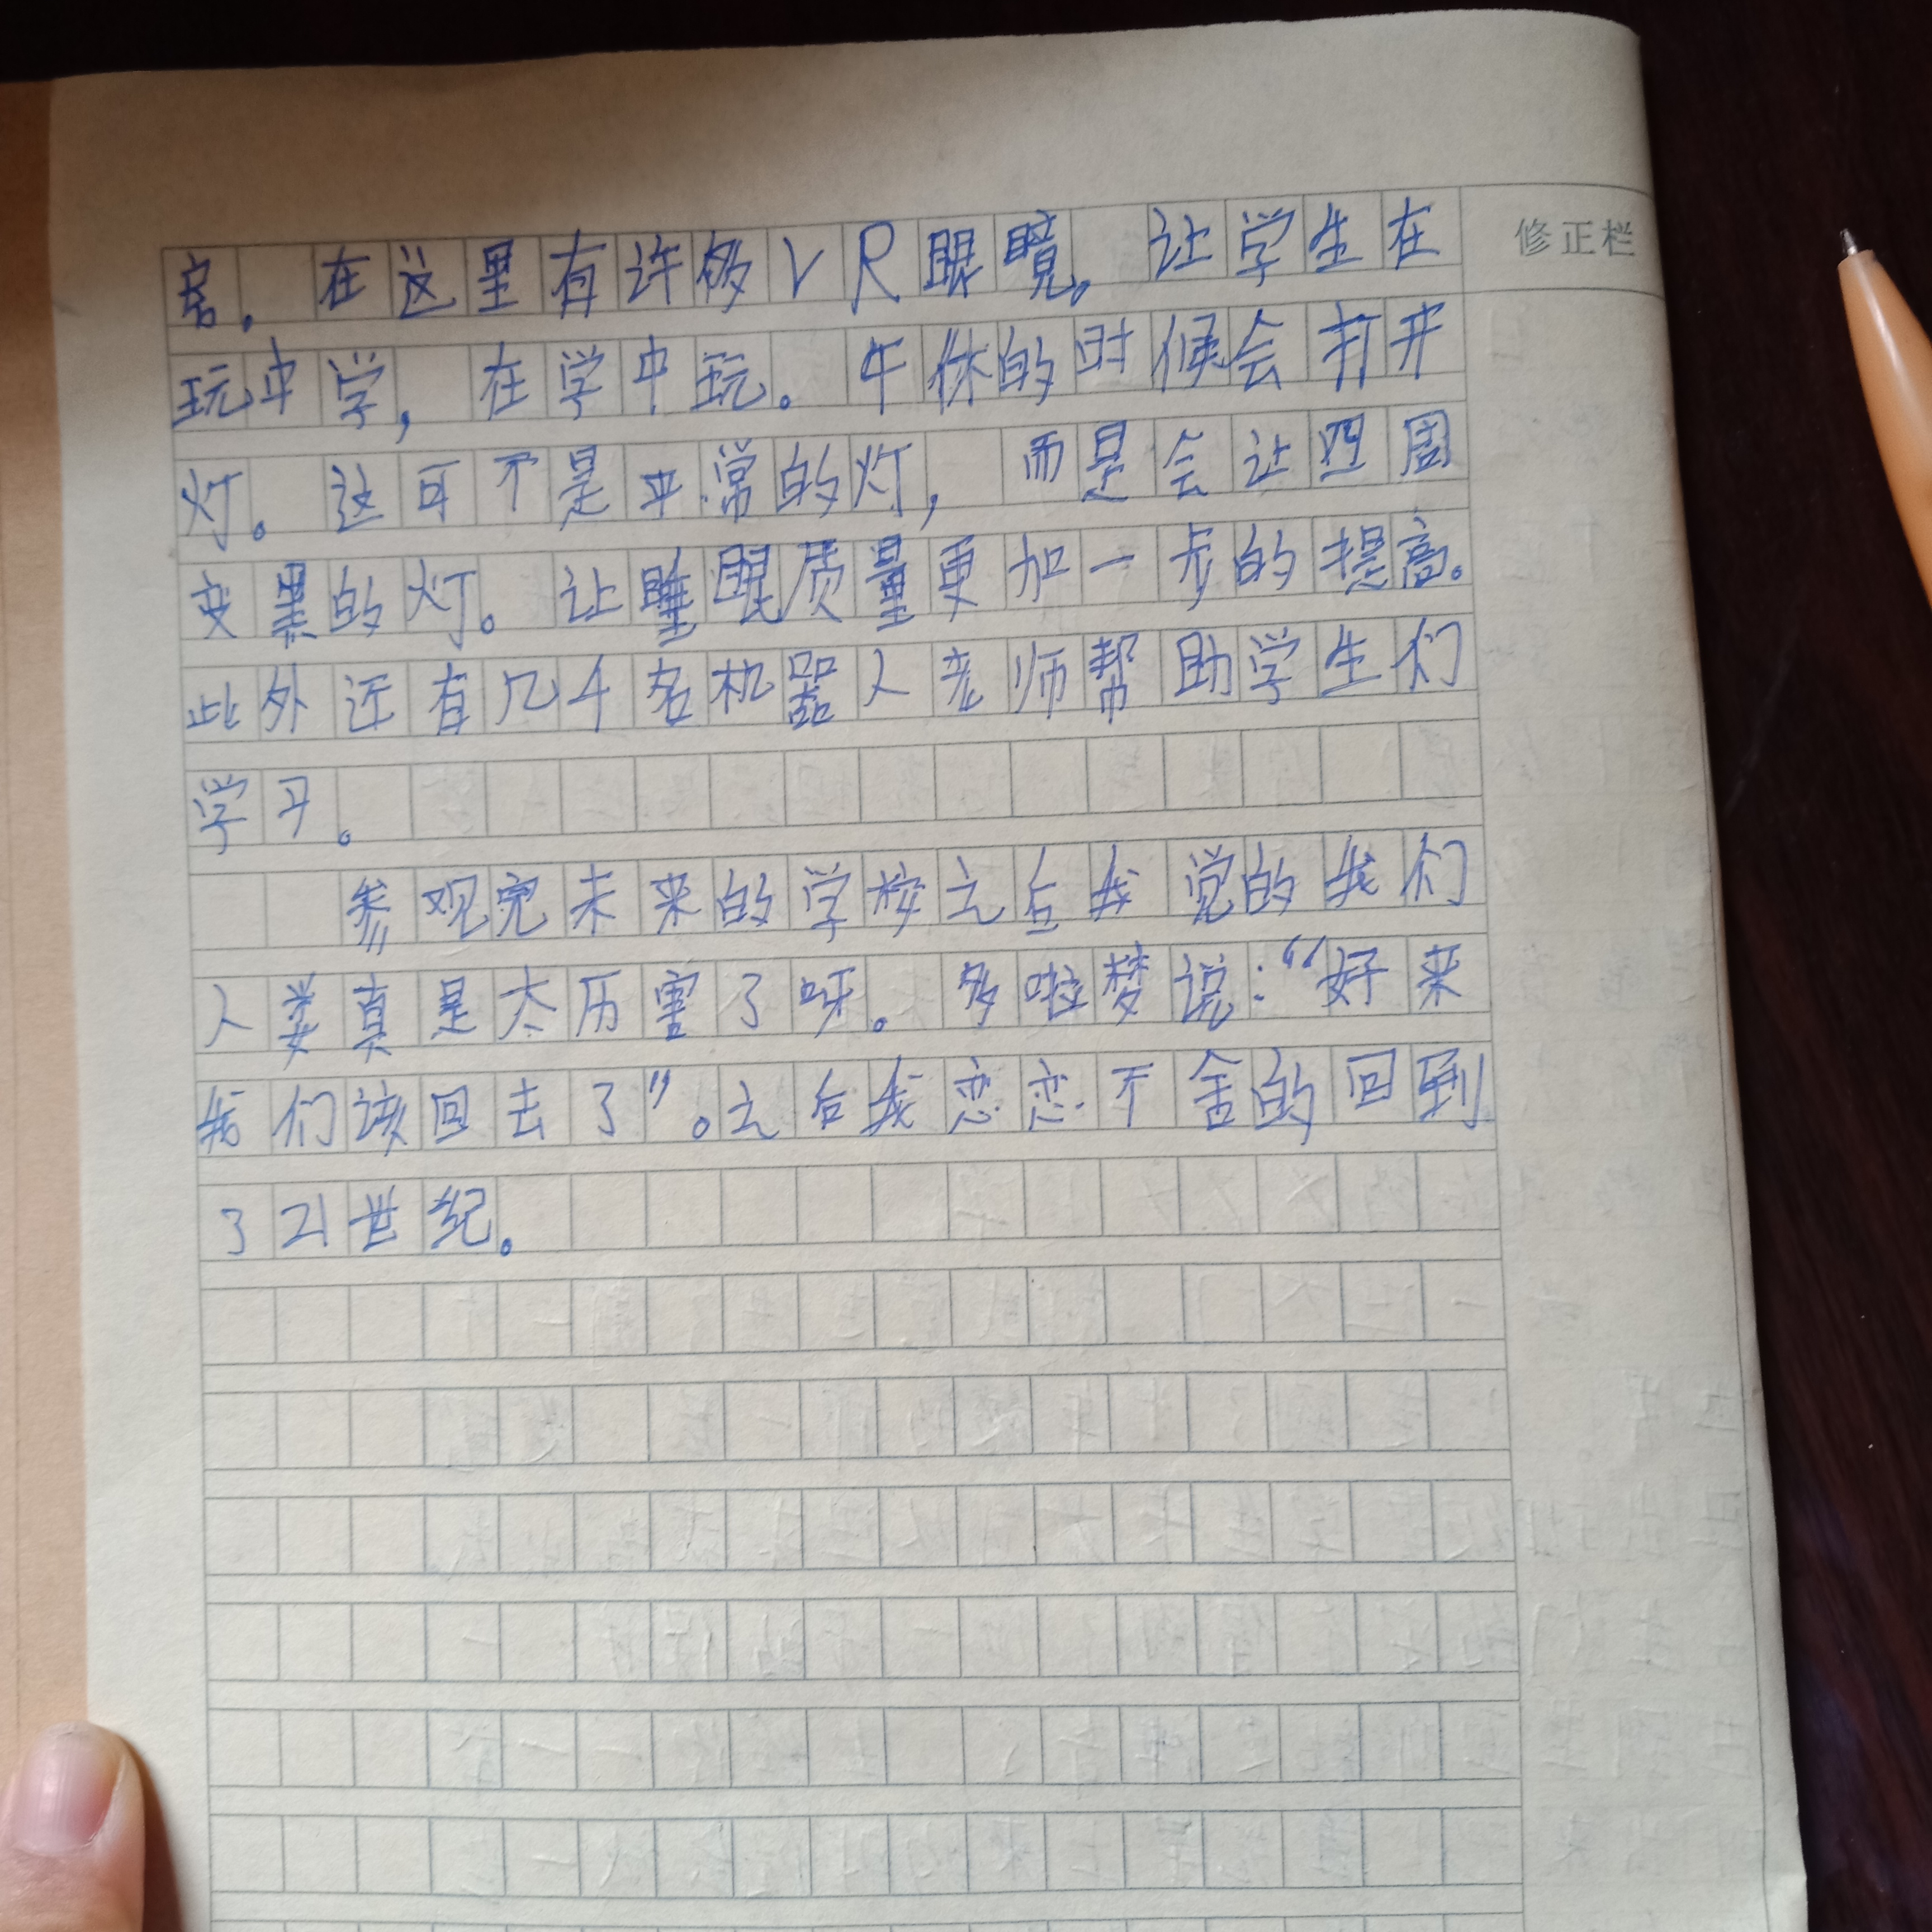 修正栏
客。在这里有许多VR眼镜。让学生在
玩中学，在学中玩。午休的时候会打开
灯。这可不是平常的灯，而是会让四周
变黑的灯。让睡眠质量更加一步的提高。
此外还有几十名机器人老师帮助学生们
学习。
参观完未来的学校之后我觉的我们
人类真是太历害了呀。多啦梦说：“好来
我们该回去了”。之后我恋恋不舍的回到
了21世纪。